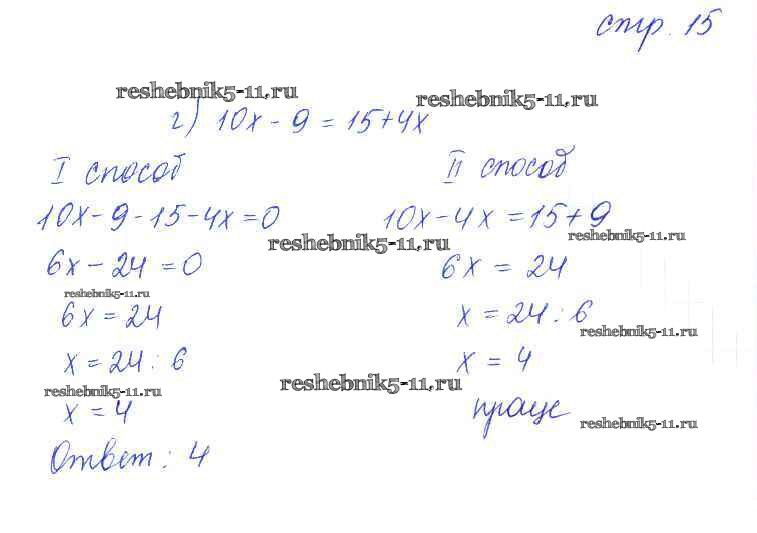 стр. 15
reshebnik5-11.ru
reshebnik5-11.ru
г) 10x - 9 = 15 + 4x
I способ
II способ
10x - 9 - 15 - 4x = 0
10x - 4x = 15 + 9
reshebnik5-11.ru
reshebnik5-11.ru
6x - 24 = 0
6x = 24
reshebnik5-11.ru
6x = 24
x = 24 : 6
reshebnik5-11.ru
x = 24 : 6
x = 4
reshebnik5-11.ru
reshebnik5-11.ru
x = 4
проще
reshebnik5-11.ru
Ответ: 4